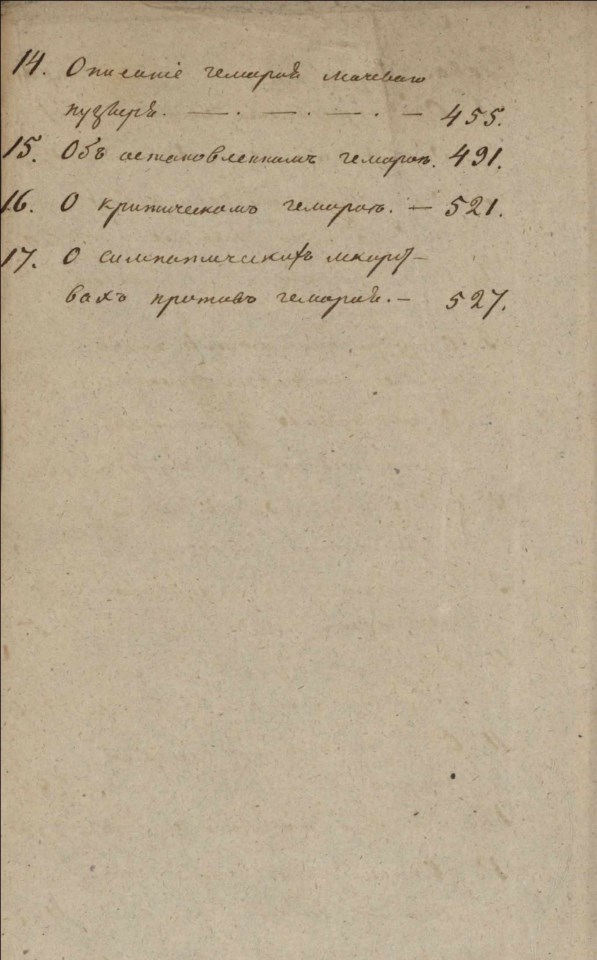 14. Описаніе гемарой мочеваго
пузыря. — . — . — . — 455.
15. Объ остановленномъ гемароѣ. 491.
16. О критическомъ гемароѣ. — 521.
17. О симпатическихъ лекарст-
вахъ противъ гемарой. — 527.